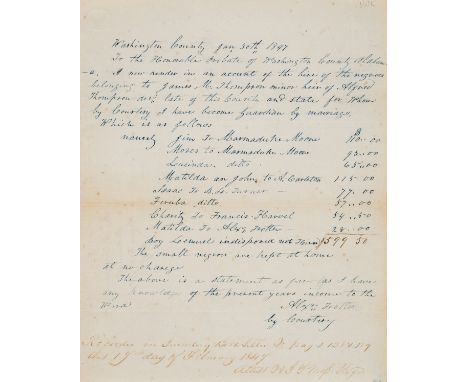 Washington County Jan 30th 1847
To the Honorable Probate of Washington County Alabam
-a, I now render in an account of the hire of the negroes
belonging to James M. Thompson minor heir of Alfred
Thompson dec'd late of this County and state for Whom
by Courtesy I have become Guardian by marriage.
Which is as follows
namely Jim to Marmaduke Moore 110.00
Moses to Marmaduke Moore 95.00
Lucinda ditto 65.00
Matilda an John to A. Carleton 115.00
Isaac To D. H. Turner — 77.00
Feruba ditto 57.00
Charity to Francis Harvel 54.50
Matilda To Alex Trotter — 28.00
Boy Lemuel indisposed not hired $599 50
The small negroes are kept at home
at no charge
The above is a statement as far as I have
any knowledge of the present years income to the
Ward
Alex Trotter
by Courtesy
Recorded in
this 17th day of February 1847
Attest